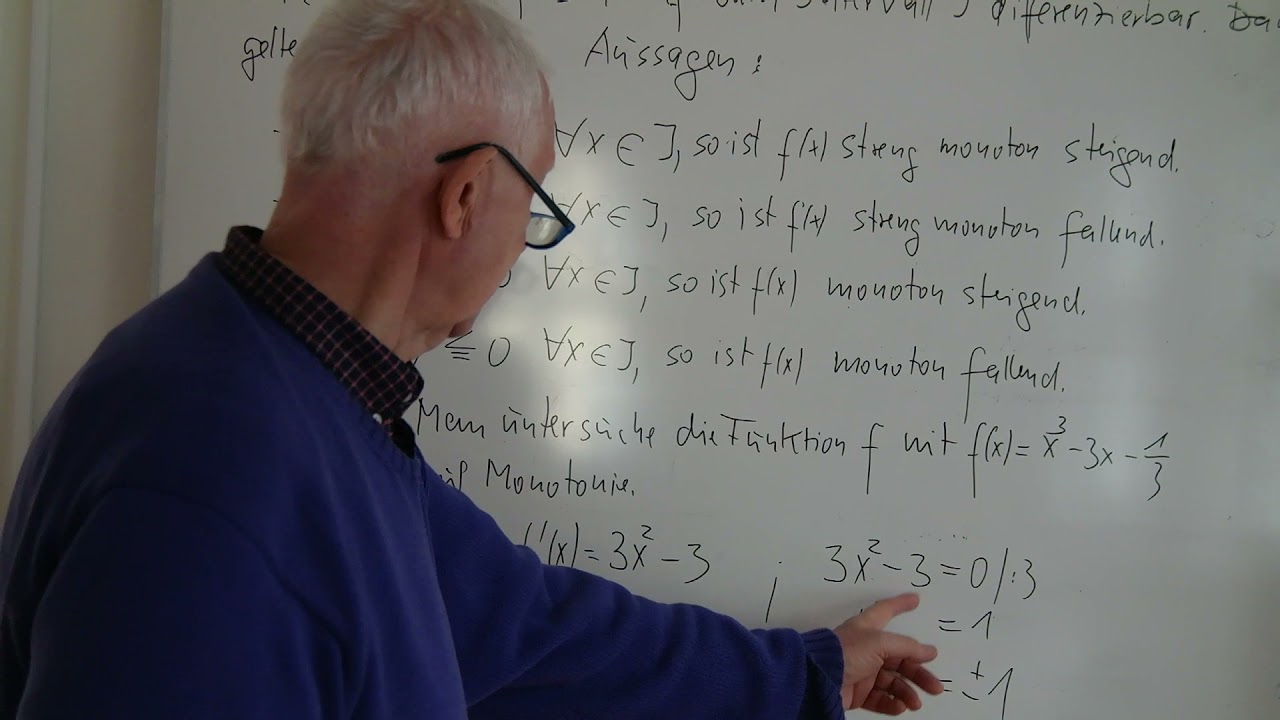 differenzierbar.
gelte Aussagen:
∀x ∈ J, so ist f(x) streng monoton steigend.
∀x ∈ J, so ist f(x) streng monoton fallend.
∀x ∈ J, so ist f(x) monoton steigend.
≤ 0 ∀x ∈ J, so ist f(x) monoton fallend.
Man untersuche die Funktion f mit f(x) = x³ - 3x - 1/3
Monotonie.
f'(x) = 3x² - 3 ; 3x² - 3 = 0 / :3
= 1
= ±1